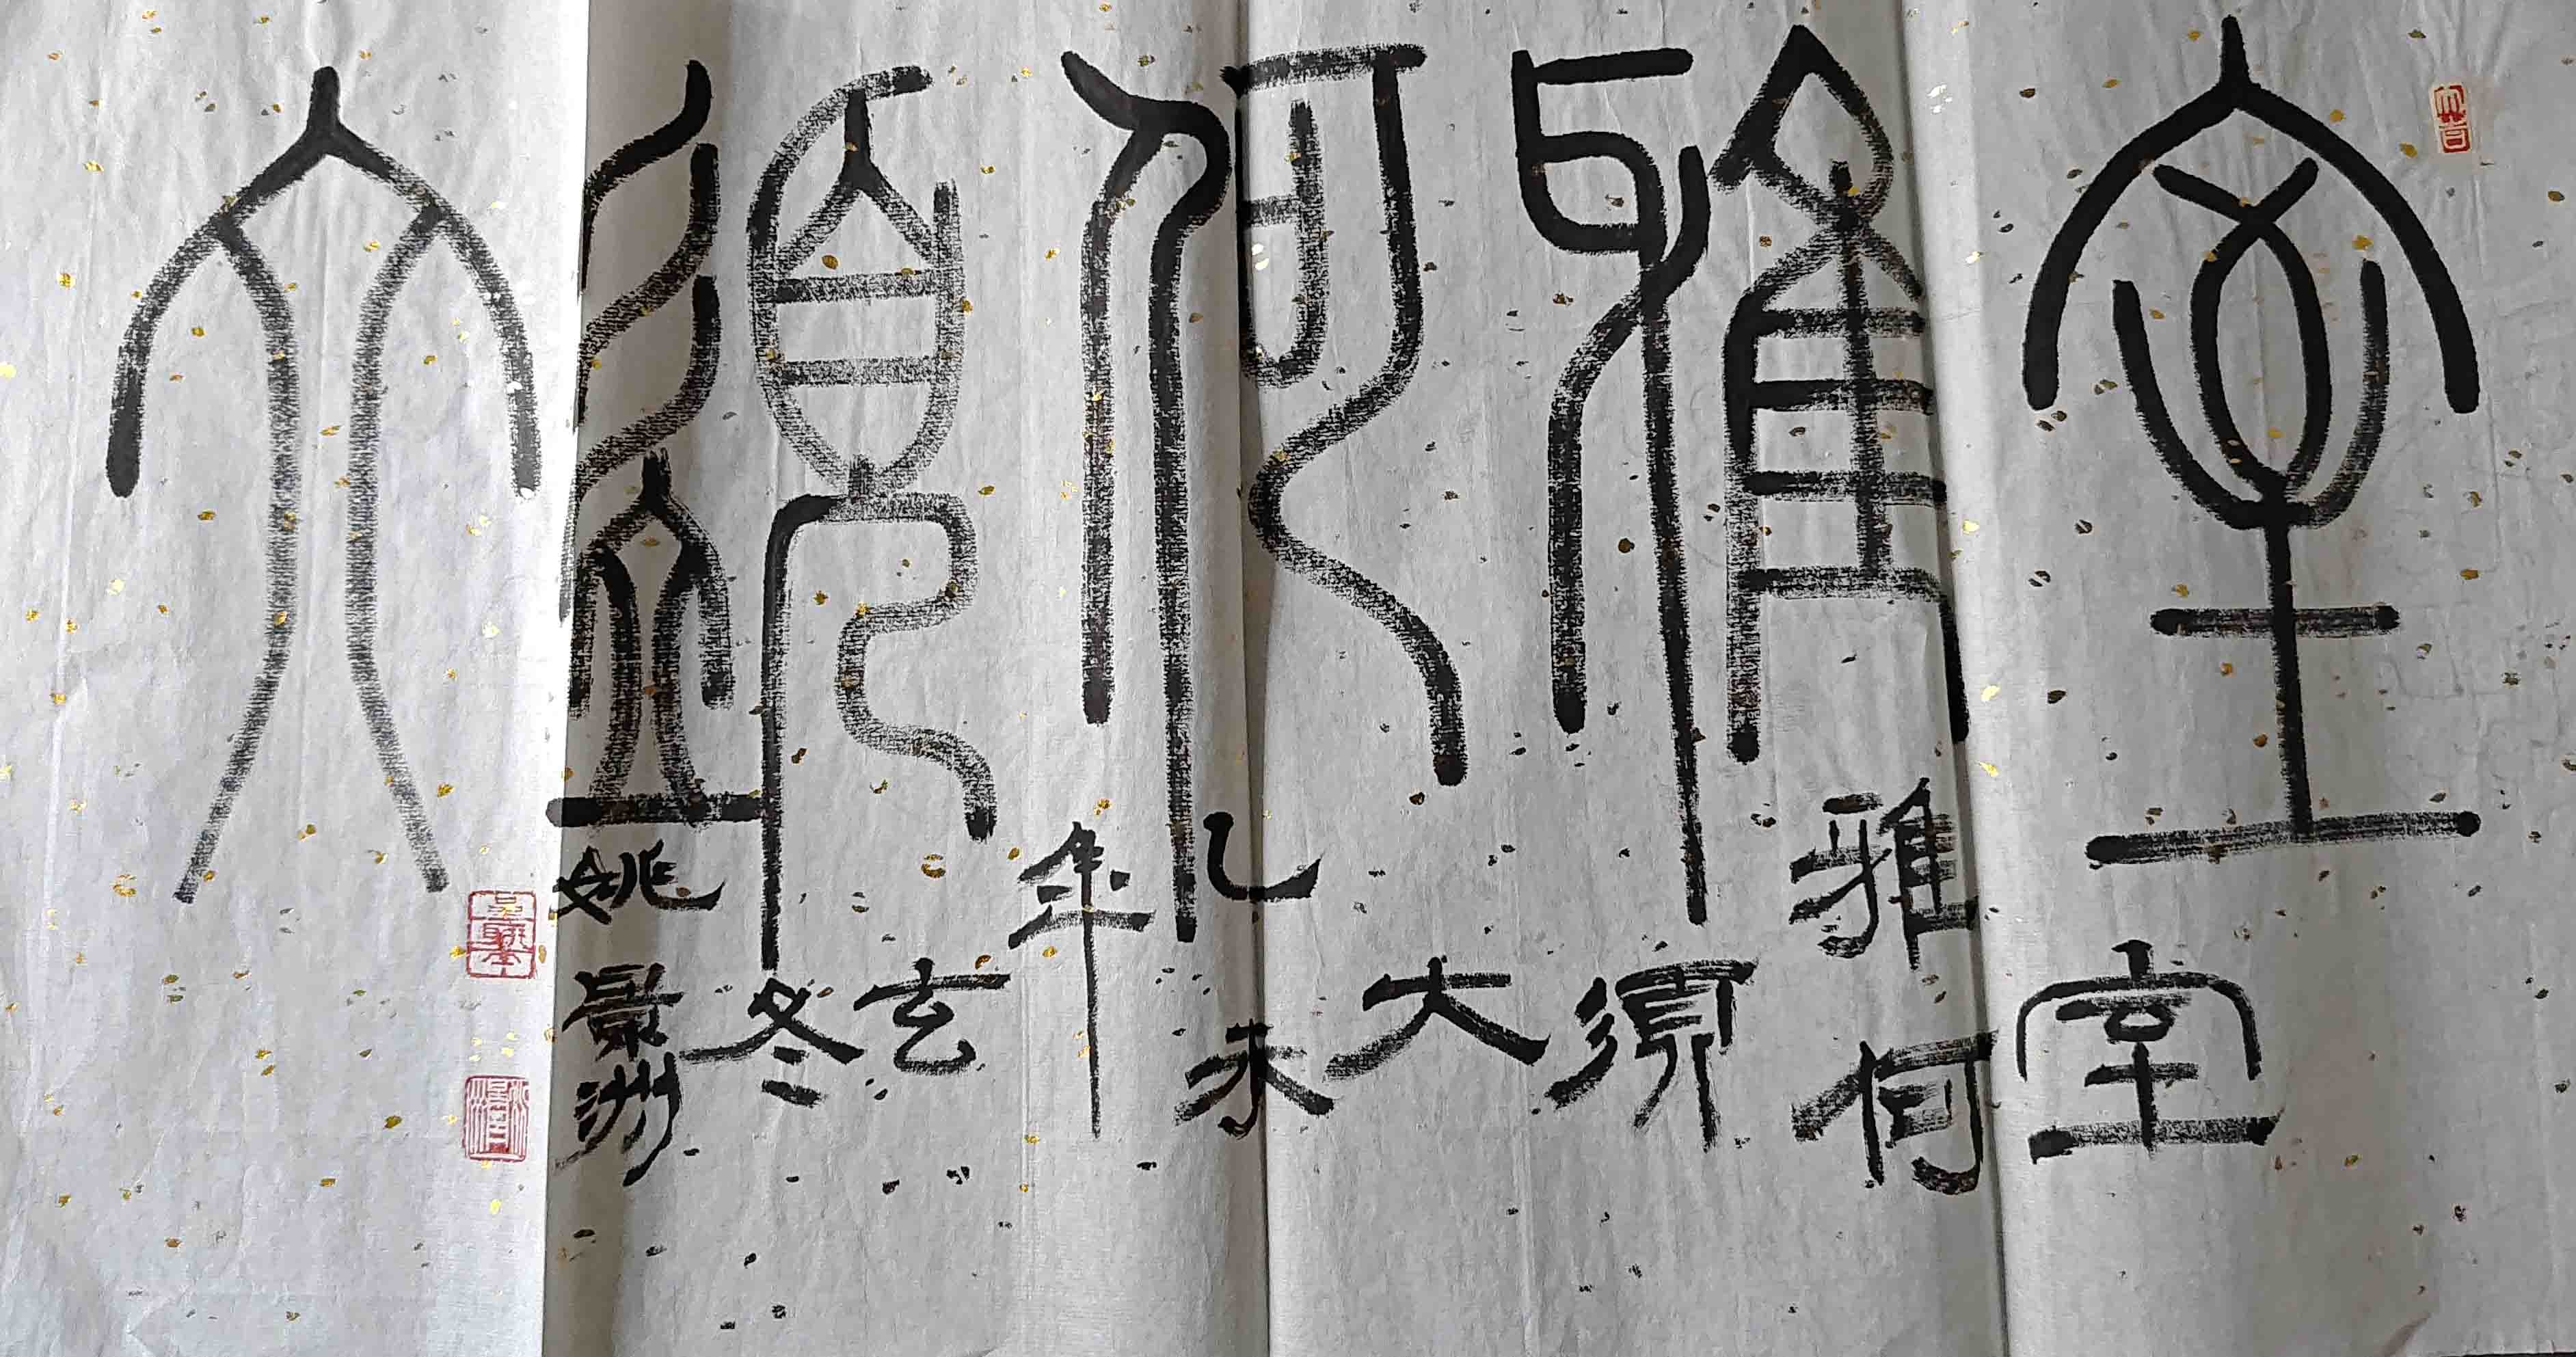 室雅何須大
室雅何須大乙未年玄冬姚景洲